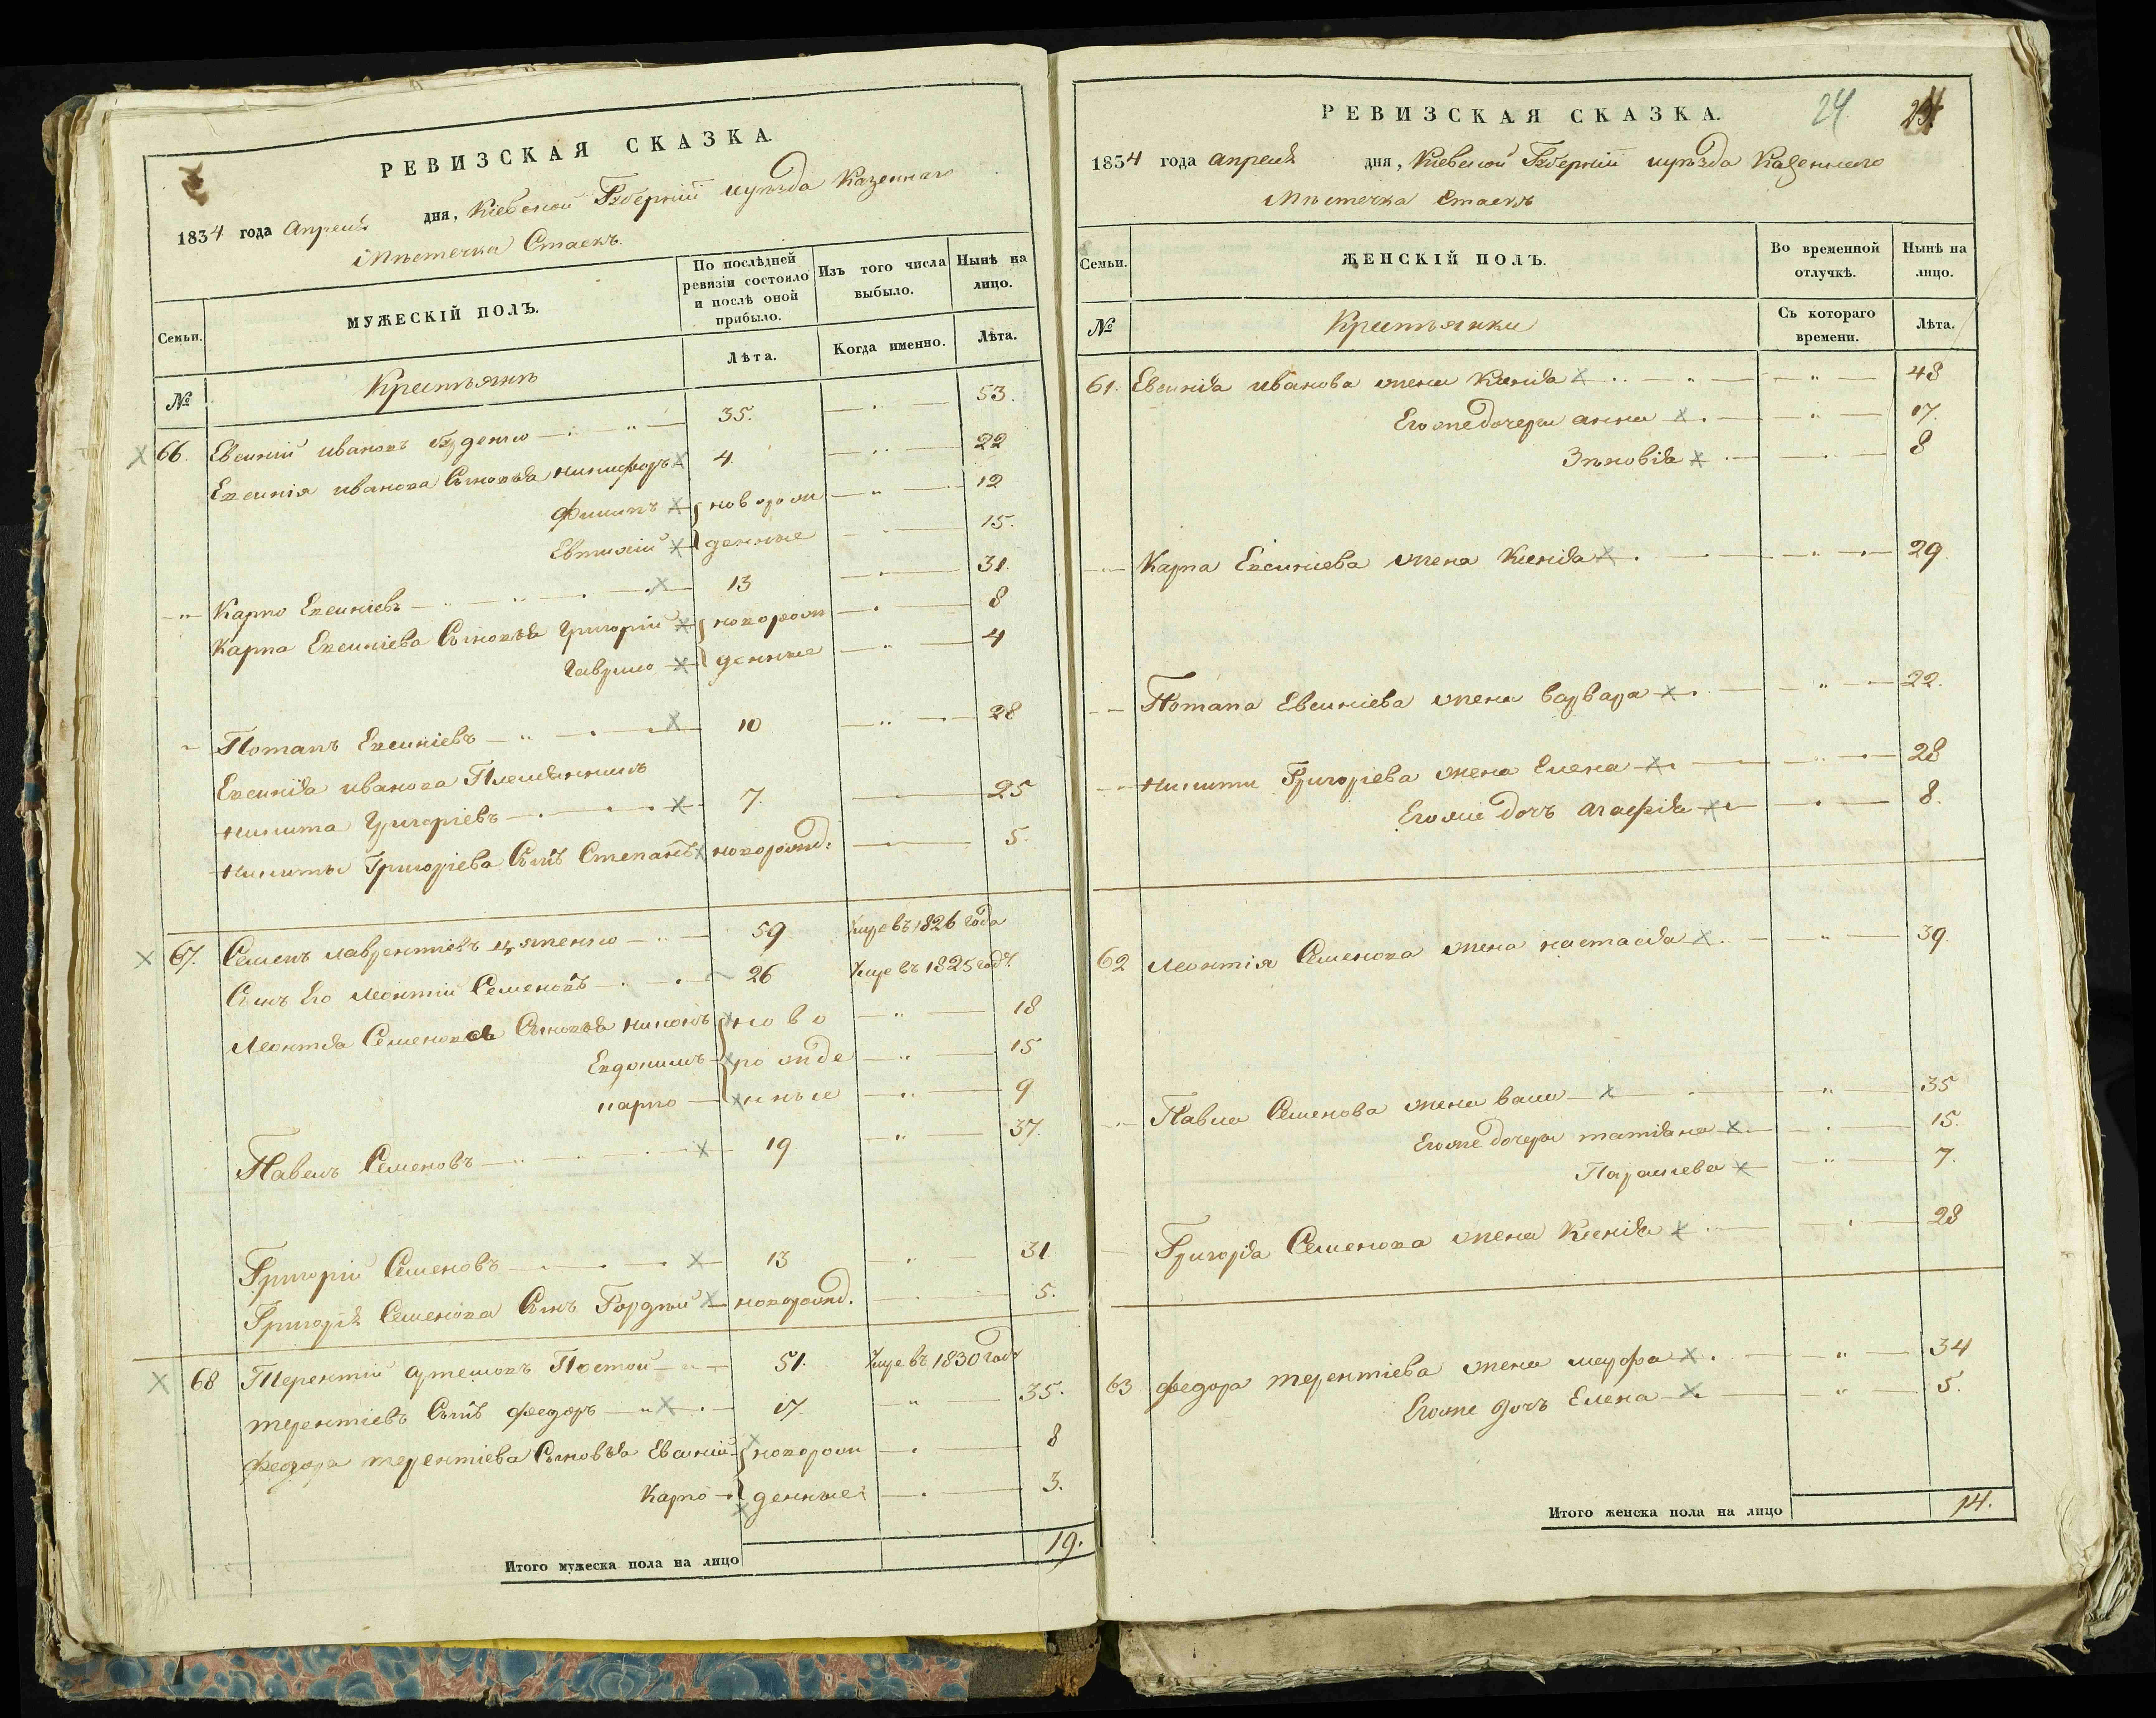 РЕВИЗСКАЯ СКАЗКА.
1834 года Апреля дня, Кіевской Губерніи и уезда Казеннаго
Местечка Стаекъ.
Семьи.
МУЖЕСКІЙ ПОЛЪ.
По послѣдней ревизіи состояло и послѣ оной прибыло.
Изъ того числа выбыло.
Нынѣ на лицо.
№
Крестьянъ
Лѣта.
Когда именно.
Лѣта.
66. Евсиѣий Ивановъ 35. 53.
Евсиѣія Иванова Сыновья Никифоръ 4. 22
Филипъ 12
Евтихій новорожденные 15.
Карпо Евсиѣіевъ 13 31.
Карпа Евсиѣіева Сыновья Григорій новорож 8
Гаврило денные 4
Потапъ Евсиѣіевъ 10 28
Евсиѣія Иванова Племянникъ
Никита Григоріевъ 7. 25
Никиты Григоріева Сынъ Степанъ новорожд: 5.
67. Семенъ Лаврентіевъ 59 Умре въ 1826 года
Сынъ Его Леонтій Семеновъ 26 Умре въ 1825 году
Леонтія Семенова Сыновья ново 18
рожде 15
Карпо нные 9
Павелъ Семеновъ 19 37.
Григорій Семеновъ 13 31
Григорія Семенова Сынъ Гордѣй новорожд. 5.
68 Терентій 51. Умре въ 1830 году
Терентіевъ Сынъ Федоръ 17. 35.
Федора Терентіева Сыновья новорож 8
Карпо денные 3.
Итого мужеска пола на лицо 19.
РЕВИЗСКАЯ СКАЗКА. 24
1834 года Апреля дня, Кіевской Губерніи и уѣзда Казеннаго
Мѣстечка Стаекъ
Семьи.
ЖЕНСКІЙ ПОЛЪ.
Во временной отлучкѣ.
Нынѣ на лицо.
№
Крестьянки
Съ котораго времени.
Лѣта.
61. Иванова жена Ксенія 48
Его же дочери Анна 17.
Зѣновія 8
Карпа жена Ксенія 29.
Потапа жена Варвара 22.
Никиты Григоріева жена Елена 28
Его же дочь Агафія 8.
62 Леонтія Семенова жена Настасія 39.
Павла Семенова жена 35
Его же дочери Татіяна 15.
7.
Григорія Семенова жена Ксенія 28
63 Федора Терентіева жена 34
Его же дочь Елена 5.
Итого женска пола на лицо 14.